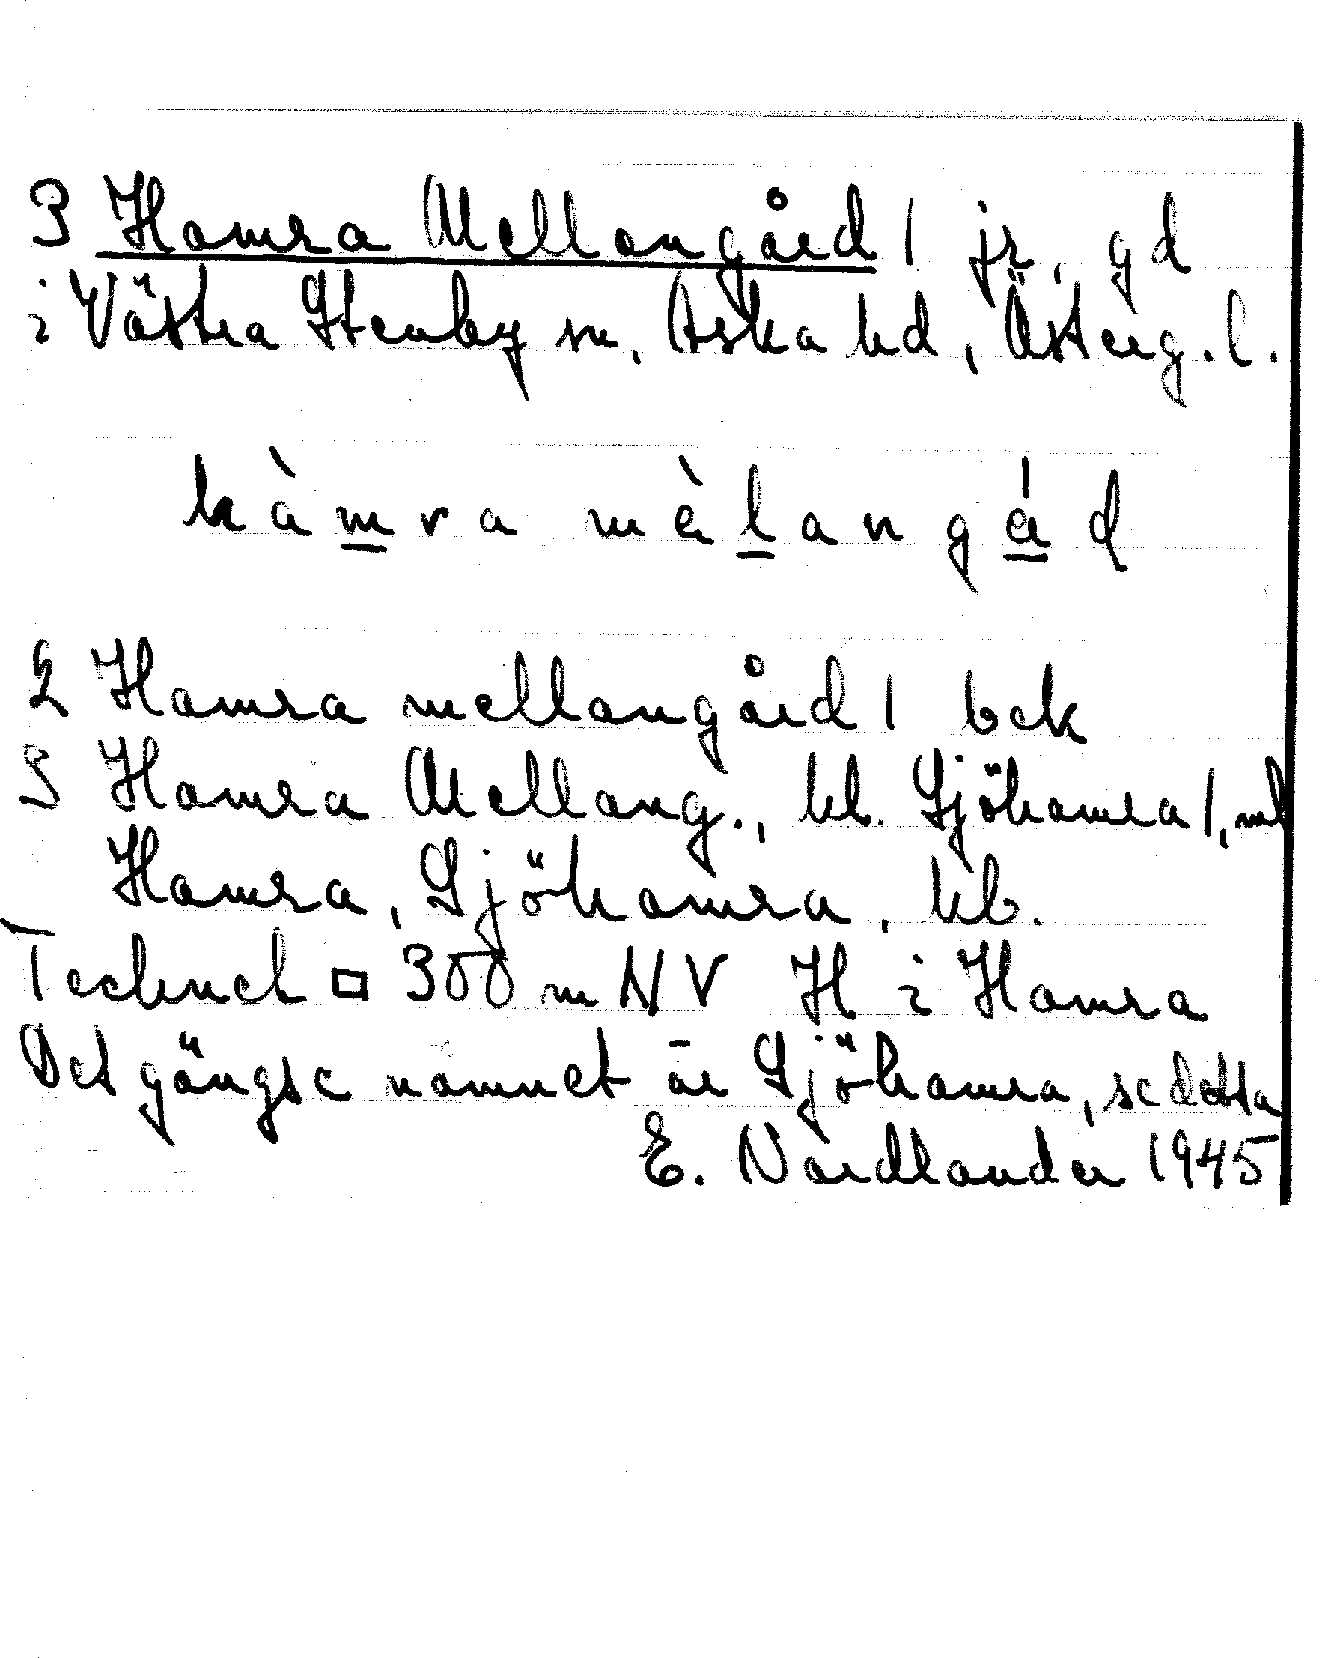 3 Hamra Mellangård 1 jr, gd
i Västra Stenby sn, Aska hd, Österg. l.
hàmra mèlangád
2 Hamra mellangård 1 bek
3 Hamra Mellang., hb. Sjöhamra 1, ml
Hamra, Sjöhamra, hb.
Tecknet □ 300 m NV H i Hamra
Det gängse namnet är Sjöhamra, se detta
E. Nordlander 1945